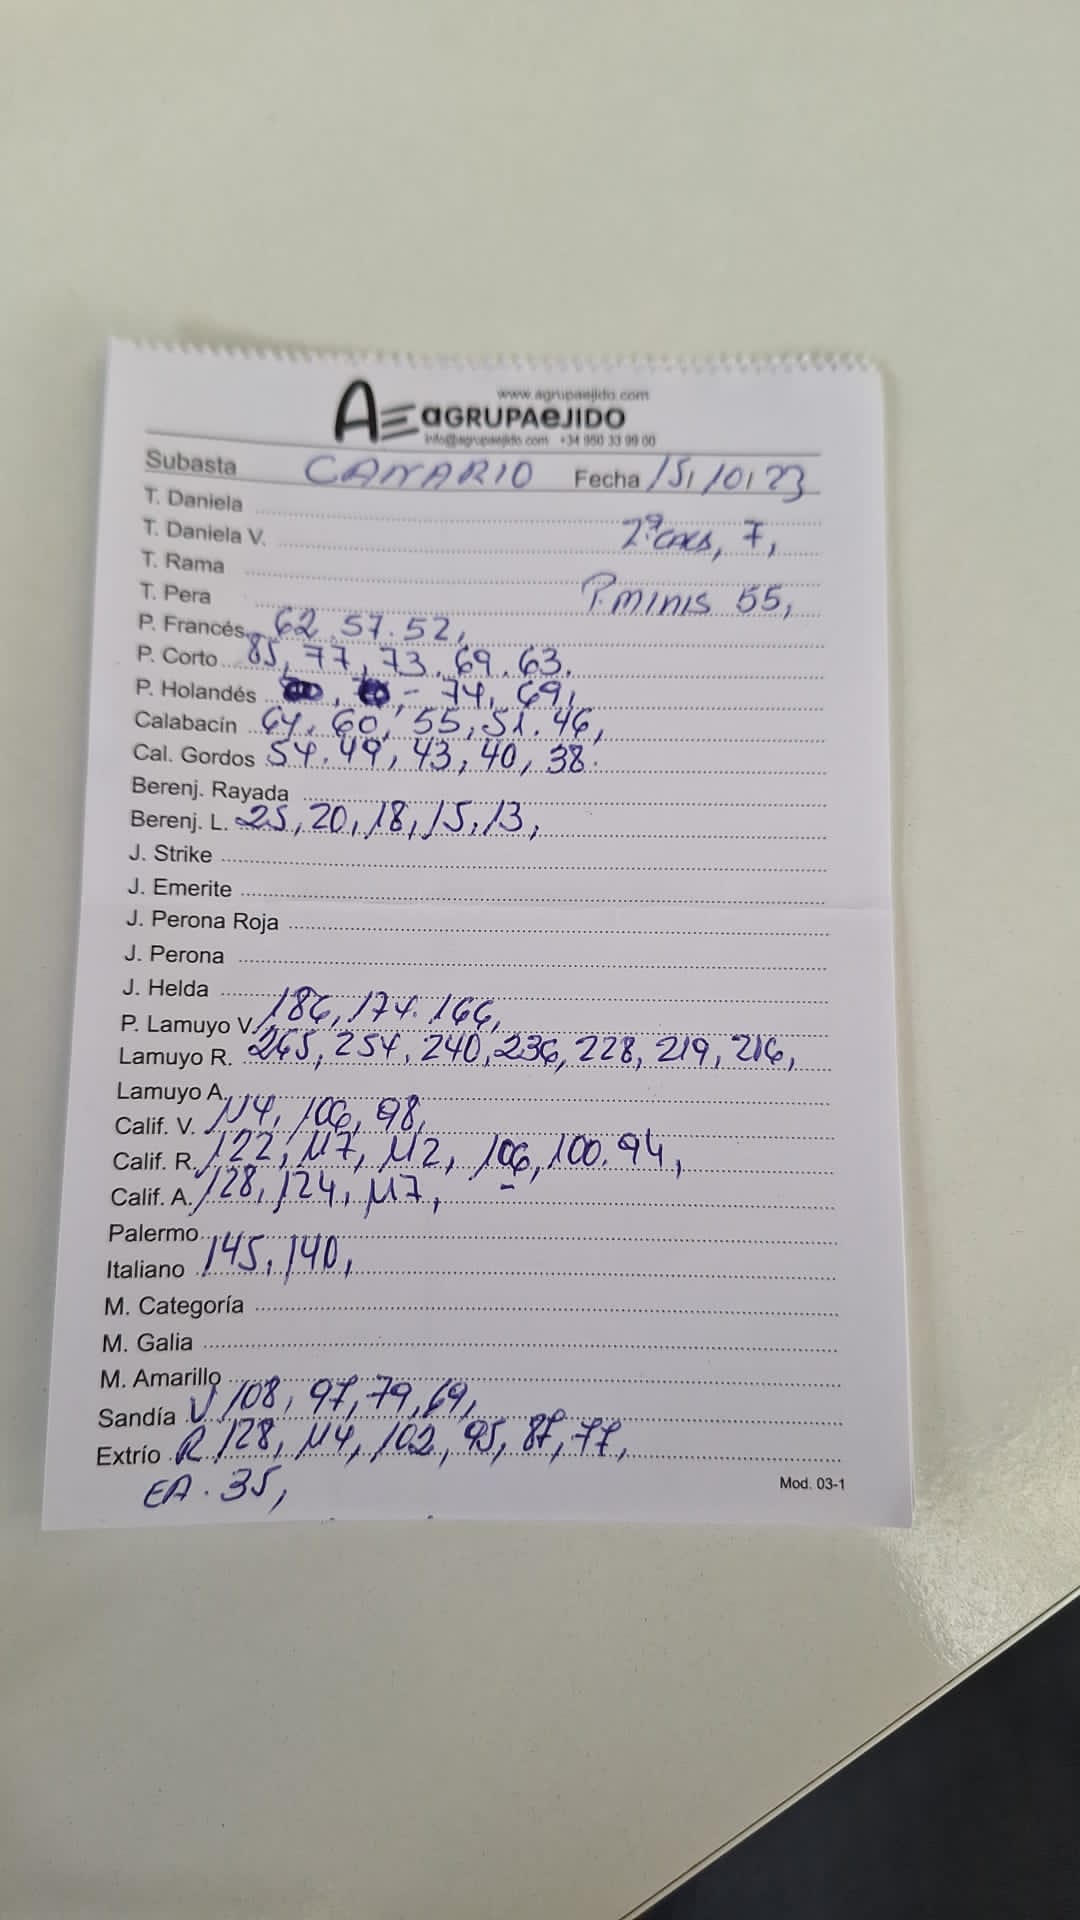 www.agrupaejido.com
AE aGRUPAeJIDO
info@agrupaejido.com +34 950 33 99 00
Subasta CANARIO Fecha 15/10/23
T. Daniela
T. Daniela V. 2ª CALS, 7,
T. Rama
T. Pera P. MINIS 55,
P. Francés 62.57.52,
P. Corto 85, 77, 73.69.63.
P. Holandés , - 74, 69,
Calabacín 64. 60, 55, 51. 46,
Cal. Gordos 54.49, 43, 40, 38.
Berenj. Rayada
Berenj. L. 25, 20, 18, 15, 13,
J. Strike
J. Emerite
J. Perona Roja
J. Perona
J. Helda
P. Lamuyo V. 186, 174. 166,
Lamuyo R. 265, 254, 240, 236, 228, 219, 216,
Lamuyo A.
Calif. V. 114, 106, 98,
Calif. R. 122, 117, 112, 106, 100.94,
Calif. A. 128, 124, 117,
Palermo
Italiano 145, 140,
M. Categoría
M. Galia
M. Amarillo
Sandía V 108, 97, 79, 69,
Extrío R 128, 114, 102, 95, 87, 77,
EA. 35,
Mod. 03-1